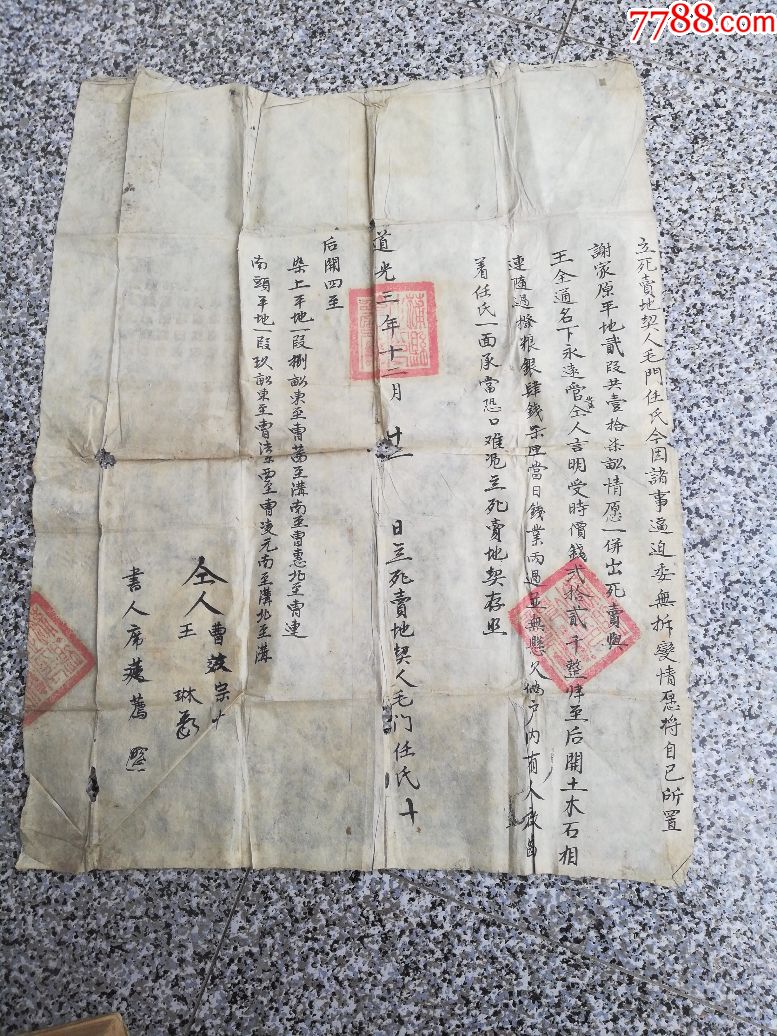 7788.com
立死賣地契人毛門任氏今因諸事逼迫委無折變情愿將自己所置
謝家原平地貳段共壹拾柒畝情愿一併出死賣與
王全通名下永遠管業仝人言明受時價錢弍拾貳千整畔至后開土木石相
連隨過糧銀肆錢柒分當日錢業兩過並無懸欠倘戶內有人争
着任氏一面承當恐口难憑立死賣地契存照
道光三年十二月 日立死賣地契人毛门任氏十
后開四至
梁上平地一段捌畝東至曹 至溝南至曹惠北至曹連
南頭平地一段玖畝東至曹法 西至曹凌元南至溝北至溝
仝人 曹 宗十
王琳
書人席